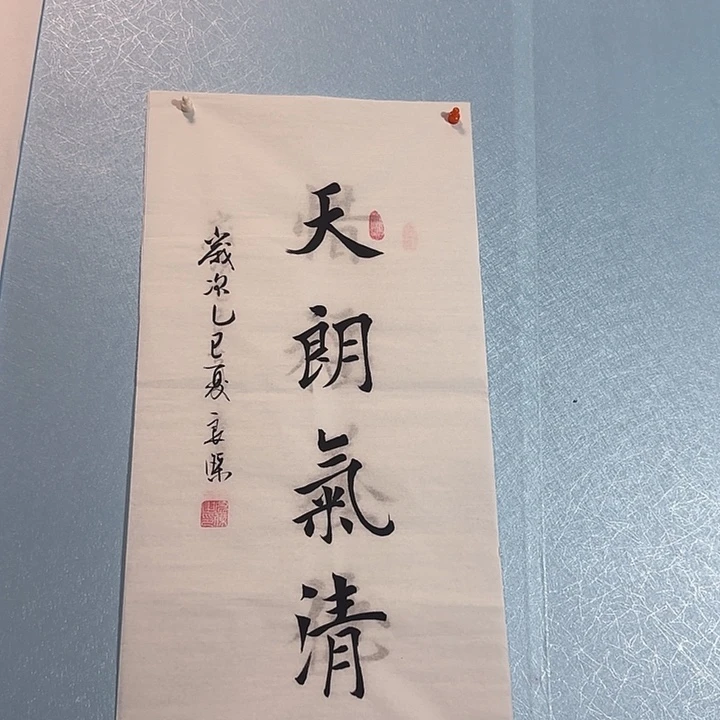 天朗氣清
歲次乙巳夏良深